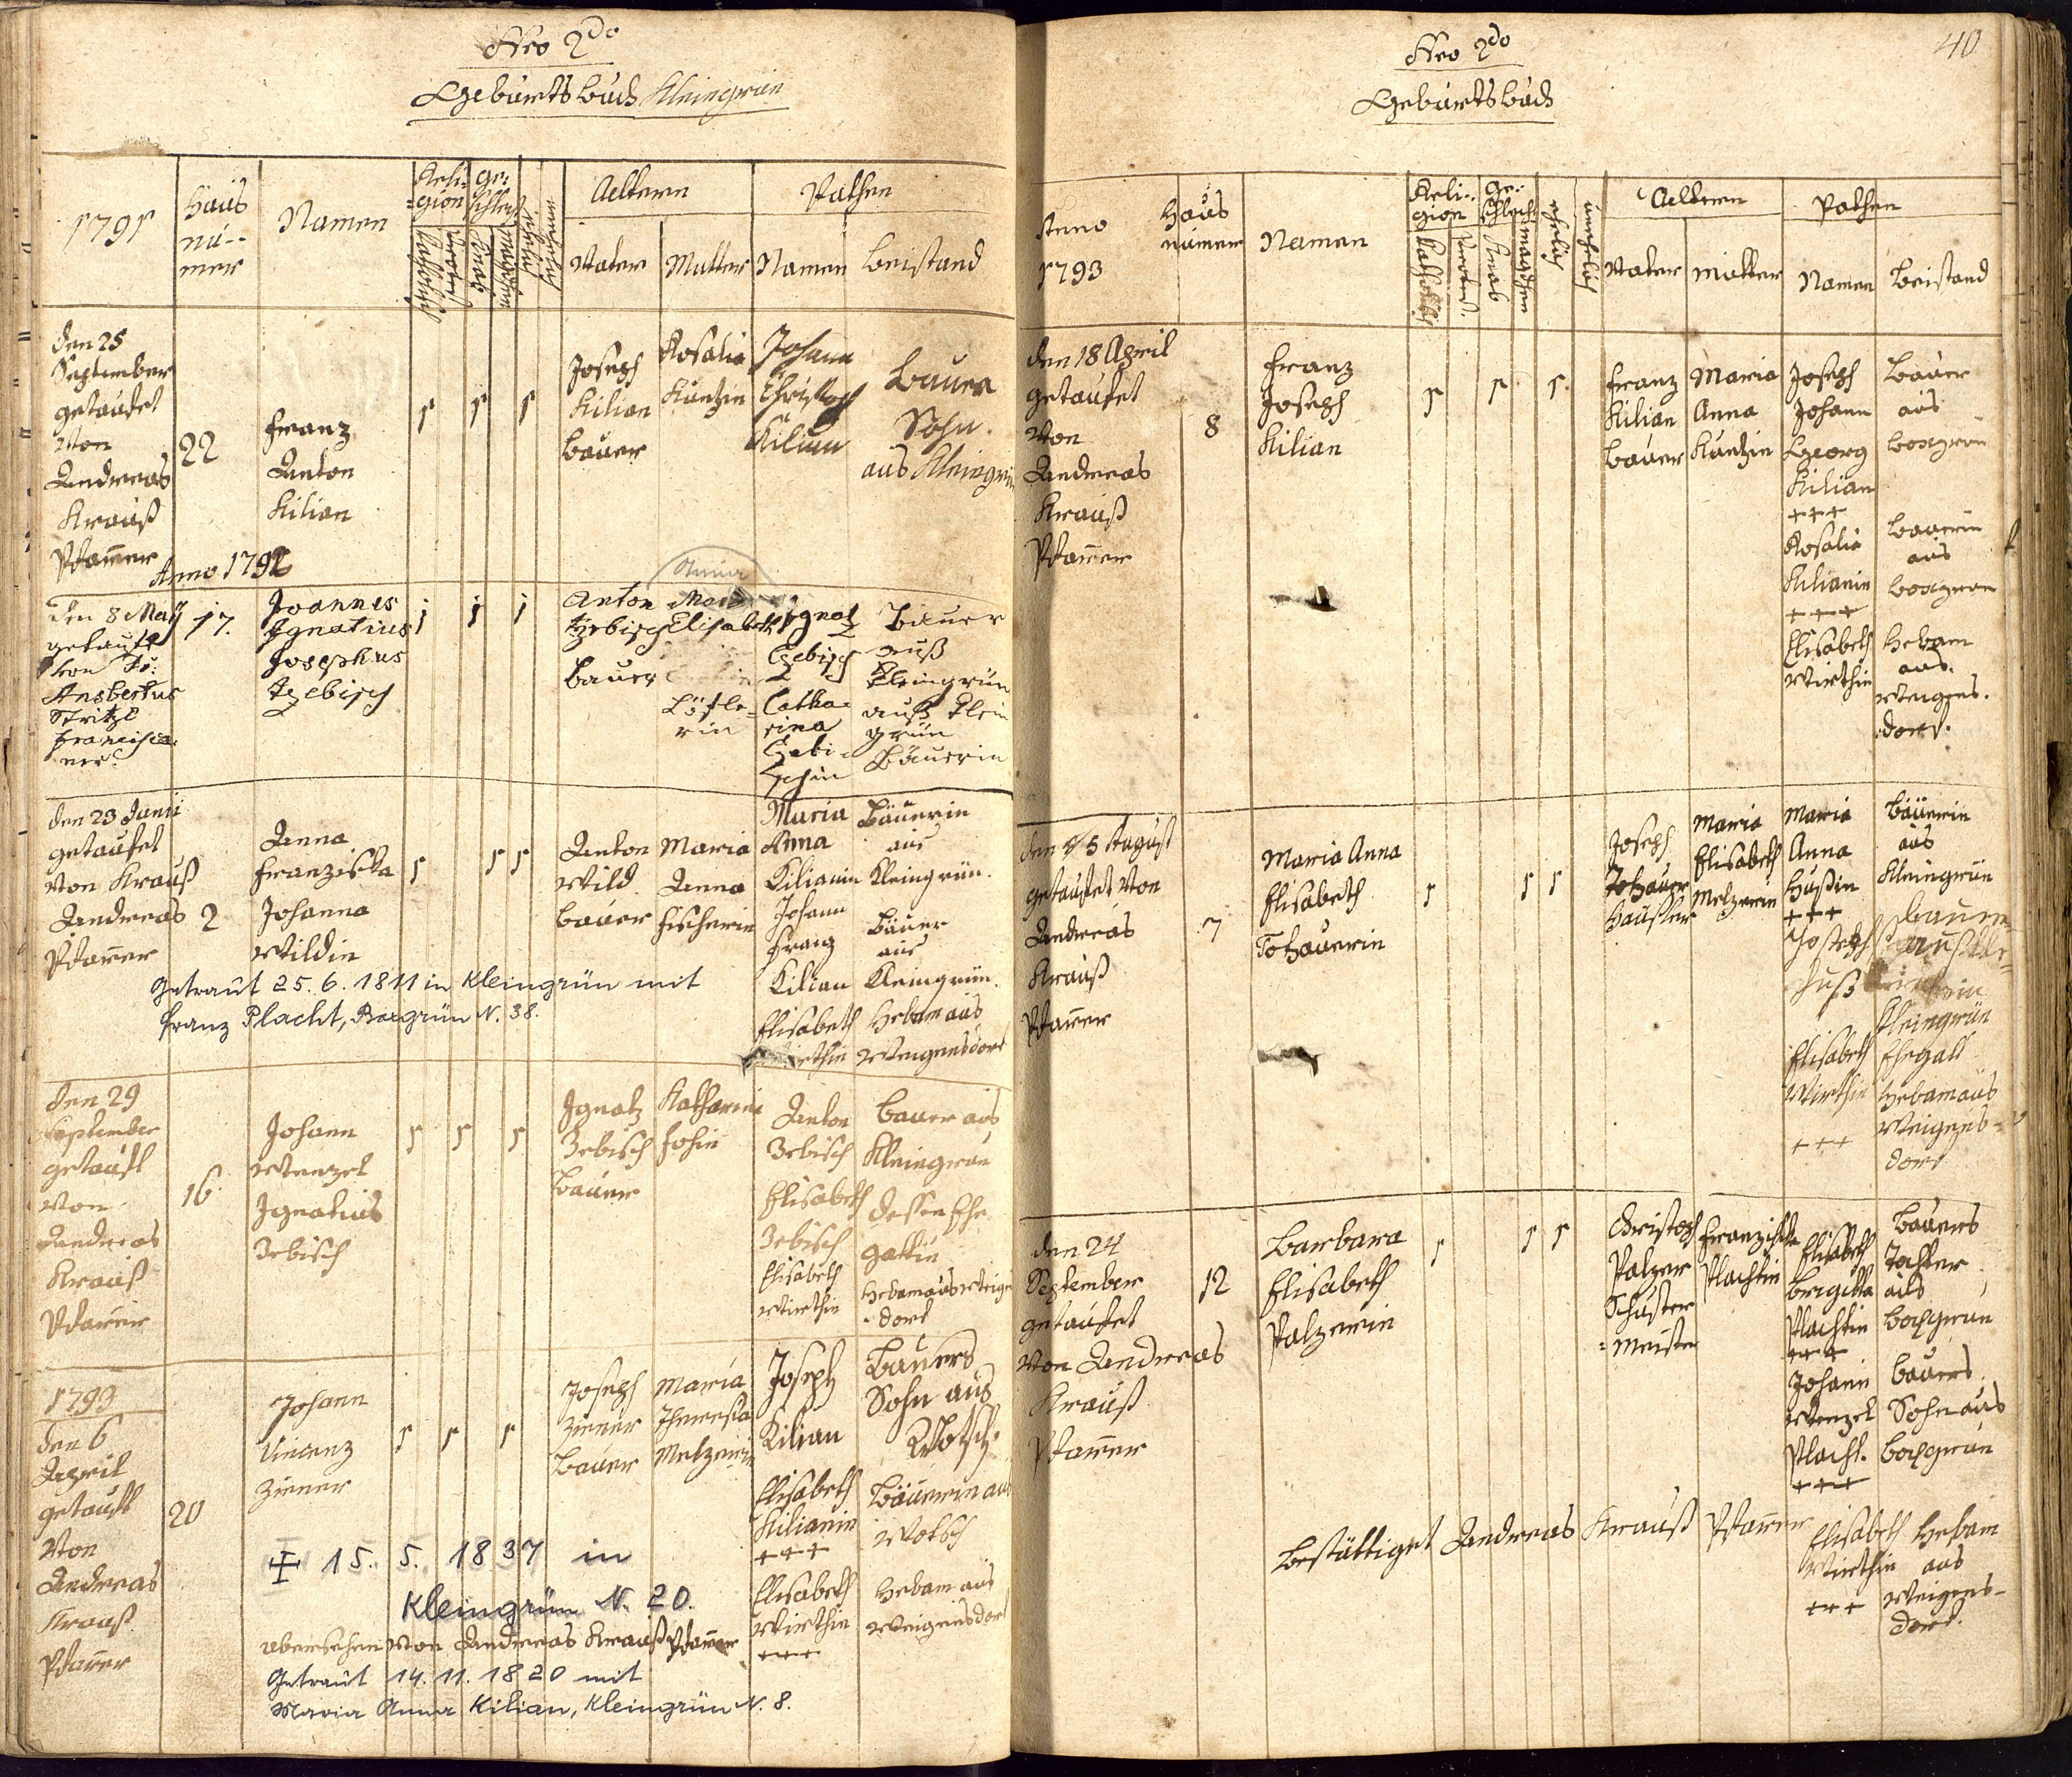 Nro 2do
Geburts Buch Kleingrün
1791
Haus
nu-
mer
Namen
Reli-
gion
Ge-
schlecht
Aeltern
Pathen
Katholisch
Protest
Knab
Mägdchen
ehelich
unehelich
Vater
Mutter
Namen
Beistand
den 25
September
getaufet
Von
Andreas
Krauß
Pfarrer
22
Franz
Anton
Kilian
1 1 1
Joseph
Kilian
Bauer
Rosalia
Kuntzin
Johann
Christoph
Kilian
Bauers
Sohn
aus Kleingrün
Anno 1792
den 8 May
getauft
von
Ansbertus
Stritzl
Francisca-
ner
17.
Joannes
Ignatius
Josephus
Zebisch
1 1 1
Anton
Zebisch
Bauer
Anna
Elisabeth
Löfle-
rin
Ignatz
Zebisch
Catha-
rina
Zebi-
schin
Bauer
auß
Kleingrün
auß Klein
grün
Bäuerin
den 23 Junii
getaufet
Von Krauß
Andreas
Pfarrer
2
Anna
Franziska
Johanna
Wildin
1 1 1
Anton
Wild
Bauer
Maria
Anna
Fischerin
Maria
Anna
Kilianin
Johann
Franz
Kilian
Elisabeth
Wirthin
Bäuerin
aus
Kleingrün.
Bauer
aus
Kleingrün.
Hebam aus
Weigensdorf
Getraut 25. 6. 1811 in Kleingrün mit
Franz Placht, Boxgrün N. 38.
den 29
September
getauft
Von
Andreas
Krauß
Pfarrer
16
Johann
Wenzel
Ignatius
Zebisch
1 1 1
Ignatz
Zebisch
Bauer
Katharina
Anton
Zebisch
Elisabeth
Zebisch
Elisabeth
Wirthin
Bauer aus
Kleingrün
dessen Ehe
gattin
Hebam aus Weigens
dorf
1793
den 6
April
getauft
Von
Andreas
Krauß
Pfarrer
20
Johann
Vincenz
Ziener
1 1 1
Joseph
Ziener
Bauer
Maria
Theresia
Melzerin
Joseph
Kilian
Elisabeth
Kilianin
+++
Elisabeth
Wirthin
+++
Bauers
Sohn aus
Wotsch.
Bäuerin aus
Wotsch
Hebam aus
Weigensdorf
✠ 15. 5. 1837 in
Kleingrün N. 20.
übersehen Von Andreas Krauß Pfarrer
Getraut 14. 11. 1820 mit
Maria Anna Kilian, Kleingrün N. 8.
40
Nro 2do
Geburts Buch
Anno
1793
Haus
numer
Namen
Reli-
gion
Ge-
schlecht
Katholisch
Protest.
Knab
Mägdchen
ehelich
unehelich
Aeltern
Pathen
Vater
Mutter
Namen
Beistand
den 18 April
getaufet
Von
Andreas
Krauß
Pfarrer
8
Franz
Joseph
Kilian
1 1 1
Franz
Kilian
Bauer
Maria
Anna
Kuntzin
Joseph
Johann
Georg
Kilian
+++
Rosalia
Kilianin
+++
Elisabeth
Wirthin
Bauer
aus
Boxgrün
Bäuerin
aus
Boxgrün
Hebam
aus
Weigens-
dorf.
den 15 August
getaufet Von
Andreas
Krauß
Pfarrer
7
Maria Anna
Elisabeth
Tohauerin
1 1 1
Joseph
Tohauer
Häusler
Maria
Elisabeth
Melzerin
Maria
Anna
Hußin
+++
Joseph
Huß
Elisabeth
Wirthin
+++
Bäuerin
aus
Kleingrün
Bauer
Kleingrün
Ehegatt
Hebam aus
Weigens-
dorf
den 24
September
getaufet
Von Andreas
Krauß
Pfarrer
12
Barbara
Elisabeth
Palzerin
1 1 1
Christoph
Palzer
Schuster
=meister
Franziska
Plachtin
Elisabeth
Brigitta
Plachtin
+++
Johann
Wenzel
Placht.
+++
Elisabeth
Wirthin
+++
Bauers
Tochter
aus
Boxgrün
Bauers
Sohn aus
Boxgrün
Hebam
aus
Weigens-
dorf.
Bestättiget Andreas Krauß Pfarrer